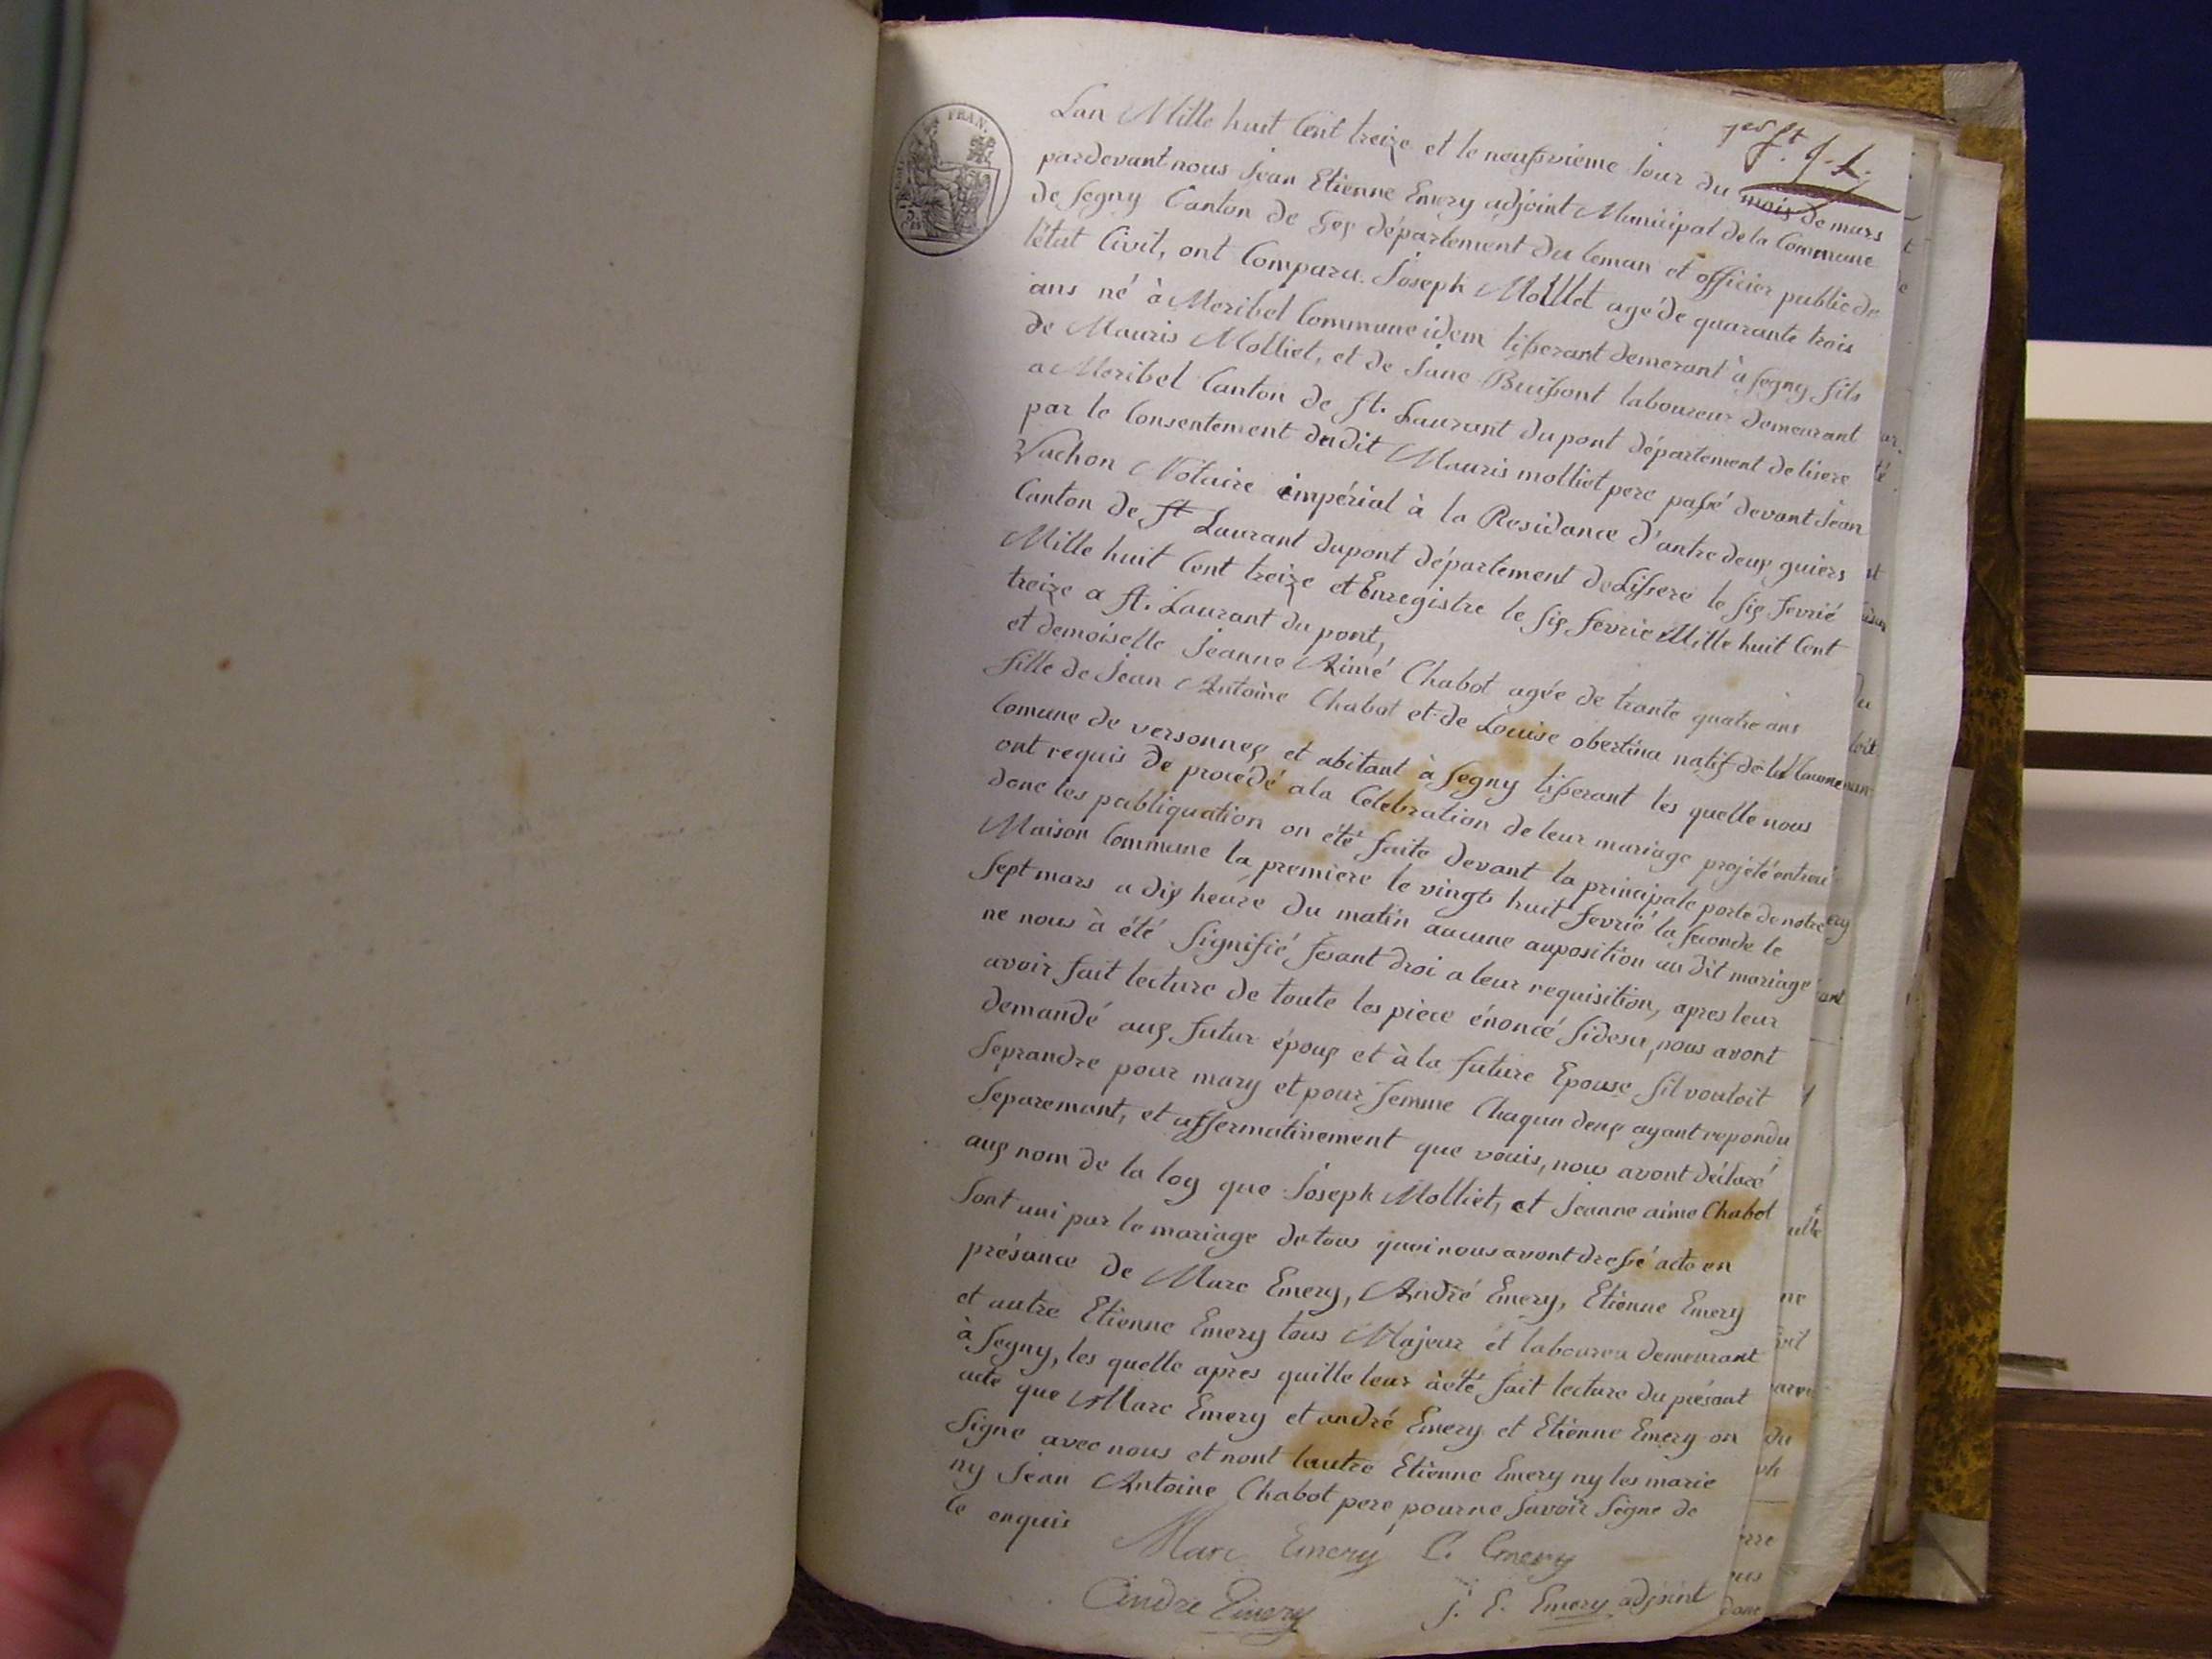 FRAN.
Lan Mille huit Cent treize et le neufvième Jour du mois de mars
pardevant nous Jean Etienne Emery adjoint Municipal de la Commune
de Segny Canton de Gex département du leman et officier public de
létat Civil, ont Comparu Joseph Molliet agé de quarante trois
ans né à Meribel Commune idem tisserant demerant à Segny fils
de Mauris Molliet, et de Jane Buissont laboureur demeurant
a Meribel Canton de St. Laurant dupont département de lisere
par le Consentement dudit Mauris molliet pere passé devant Jean
Vachon Notaire impérial à la Residance d'antre deux guiers
Canton de St Laurant dupont département de Lissere le six fevrié
Mille huit Cent treize et Enregistre le six fevrie Mille huit Cent
treize a St. Laurant du pont,
et demoiselle Jeanne Aimé Chabot agée de trante quatre ans
fille de Jean Antoine Chabot et de Louise obertina natif de la
Comune de versonnex et abitant à Segny tisserant les quelle nous
ont requis de procédé ala Celebration de leur mariage projété entreu
donc les publiquation on été faite devant la principale porte de notre
Maison Commune la premiere le vingt huit fevrié la seconde le
Sept mars a dix heure du matin aucune auposition au dit mariage
ne nous à été Signifié fesant droi a leur requisition, apres leur
avoir fait lecture de toute les piece énoncé sidesu, nous avont
demandé aux futur époux et à la future Epouse sil vouloit
seprandre pour mary et pour femme Chaqun deux ayant repondu
Separemant, et affermativement que vouis, nous avont déclaré
aux nom de la loy que Joseph Molliet, et Jeanne aime Chabot
Sont uni par le mariage de tous quoi nous avont dressé acte en
présance de Marc Emery, André Emery, Etienne Emery
et autre Etienne Emery tous Majeur et laboureu demeurant
à Segny, les quelle apres quille leur à été fait lecture du présant
acte que Marc Emery et andré Emery et Etienne Emery on
Signe avec nous et nont lautre Etienne Emery ny les marie
ny Jean Antoine Chabot pere pour ne Savoir Signe de
Ce enquis
Marc Emery E. Emery
André Emery J. E. Emery adjoint